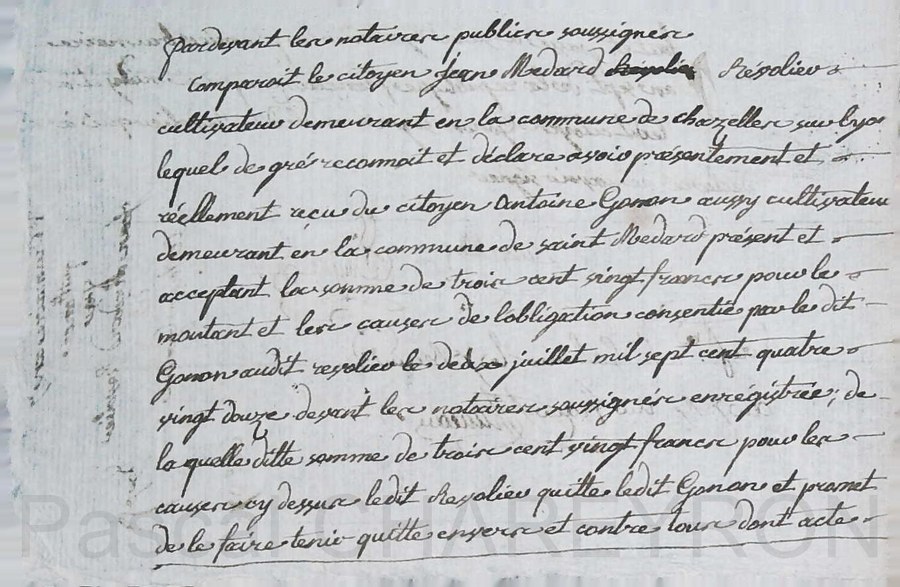 pardevant les notaires publics soussignés
Comparoit le citoyen Jean Medard Révolier
cultivateur demeurant en la commune de chazelles sur Lyon
lequel de gré reconnoit et déclare avoir présentement et
réellement reçu du citoyen Antoine Gonon aussy cultivateur
demeurant en la commune de saint Medard présent et
acceptant la somme de trois cent vingt francs pour le
montant et les causes de l'obligation consentie par le dit
Gonon audit revolier le deux juillet mil sept cent quatre
vingt douze devant les notaires soussignés enrégistrée; de
la quelle ditte somme de trois cent vingt francs pour les
causes cy dessus ledit Revolier quitte ledit Gonon et promet
de le faire tenir quitte envers et contre tous dont acte
Pascal CHAREYRON